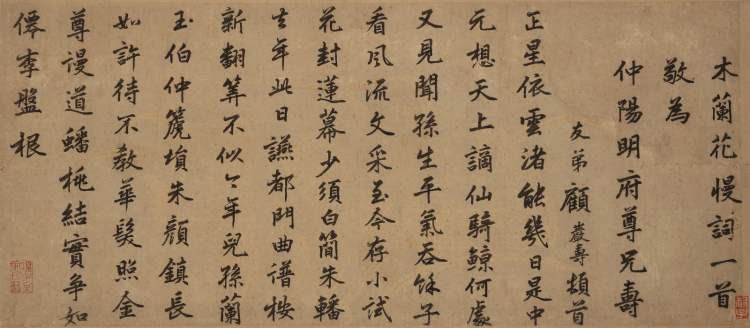 木蘭花慢詞一首
敬為
仲陽明府尊兄壽
友弟顧巖壽頓首
正星依雲渚能幾日是中
元想天上謫仙騎鯨何處
又見聞孫生平氣吞餘子
看風流文采至今存小試
花封蓮幕少須白簡朱轓
去年此日讌都門曲譜桉
新翻算不似今年兒孫蘭
玉伯仲篪塤朱顏鎮長
如許待不教華髮照金
尊謾道蟠桃結實爭如
僊李盤根